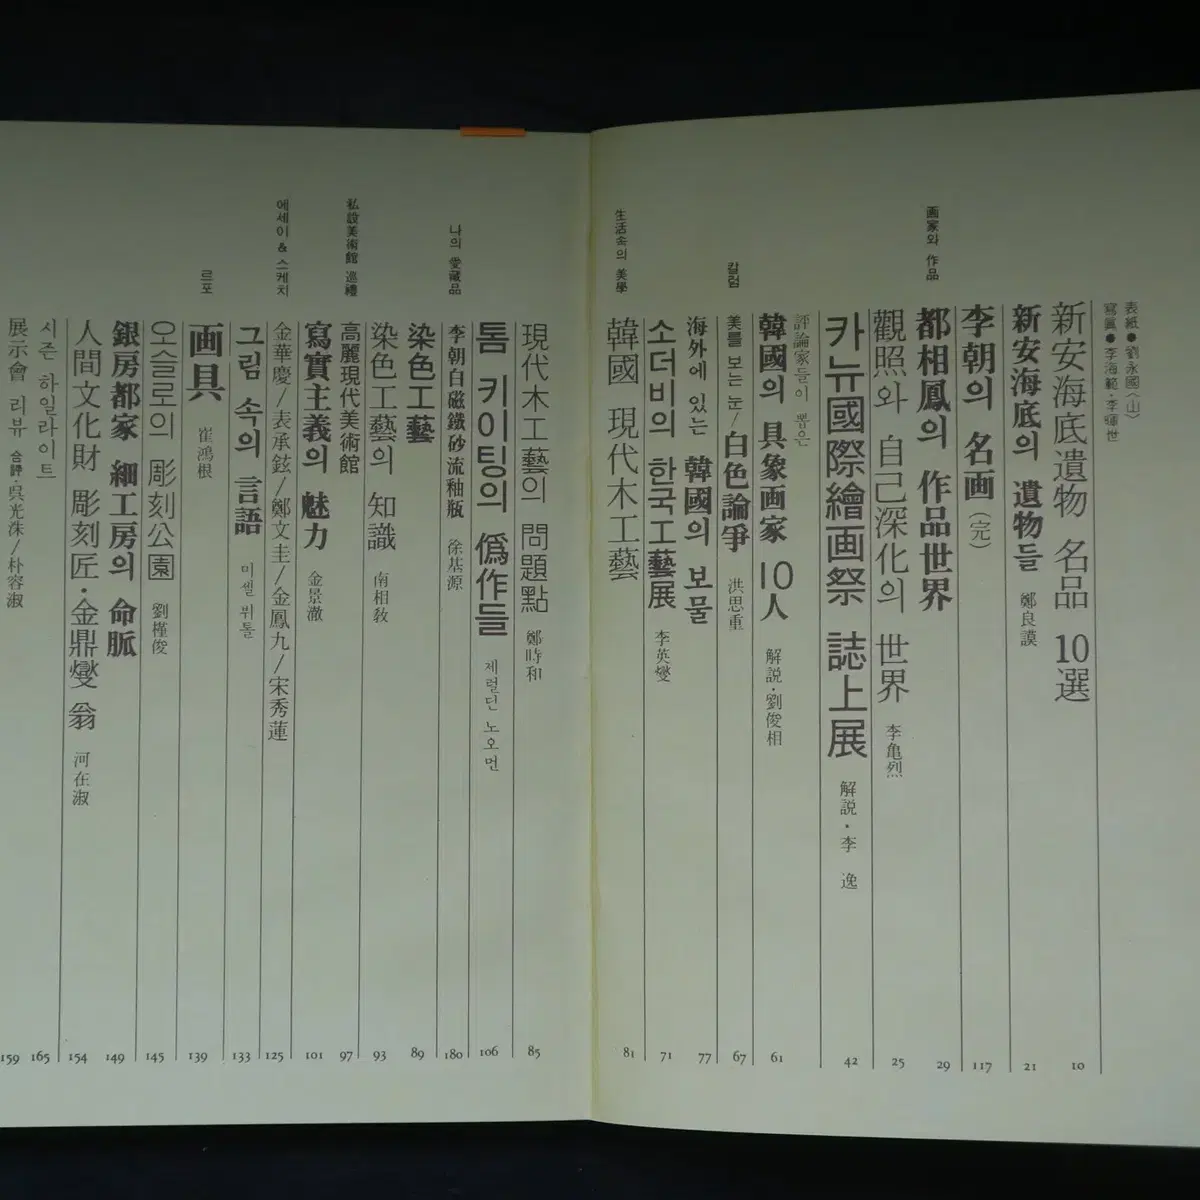 表紙●劉永國〈山〉
寫眞●李海範·李暉世
新安海底遺物 名品 10選
10
新安海底의 遺物들 鄭良謨
21
李朝의 名画(完)
117
画家와 作品
都相鳳의 作品世界
29
觀照와 自己深化의 世界 李亀烈
25
카뉴國際繪画祭 誌上展 解説·李 逸
42
評論家들이 뽑은
韓國의 具象画家 10人 解説·劉俊相
61
칼럼
美를 보는 눈/白色論爭 洪思重
67
海外에 있는 韓國의 보물
77
소더비의 한국工藝展 李英燮
71
生活속의 美學
韓國 現代木工藝
81
現代木工藝의 問題點 鄭時和
85
톰 키이팅의 僞作들 제럴딘 노오먼
106
나의 愛藏品
李朝白磁鐵砂流釉瓶 徐基源
180
染色工藝
89
染色工藝의 知識 南相教
93
私設美術館 巡禮
高麗現代美術館
97
寫實主義의 魅力 金景澈
101
에세이 & 스케치
金華慶/表承鉉/鄭文圭/金鳳九/宋秀蓮
125
그림 속의 言語 미셸 뷔톨
133
르포
画具 崔鴻根
139
오슬로의 彫刻公園 劉槿俊
145
銀房都家 細工房의 命脈
149
人間文化財 彫刻匠·金鼎燮 翁 河在淑
154
시즌 하일라이트
165
展示會 리뷰 合評·吳光洙/朴容淑
159